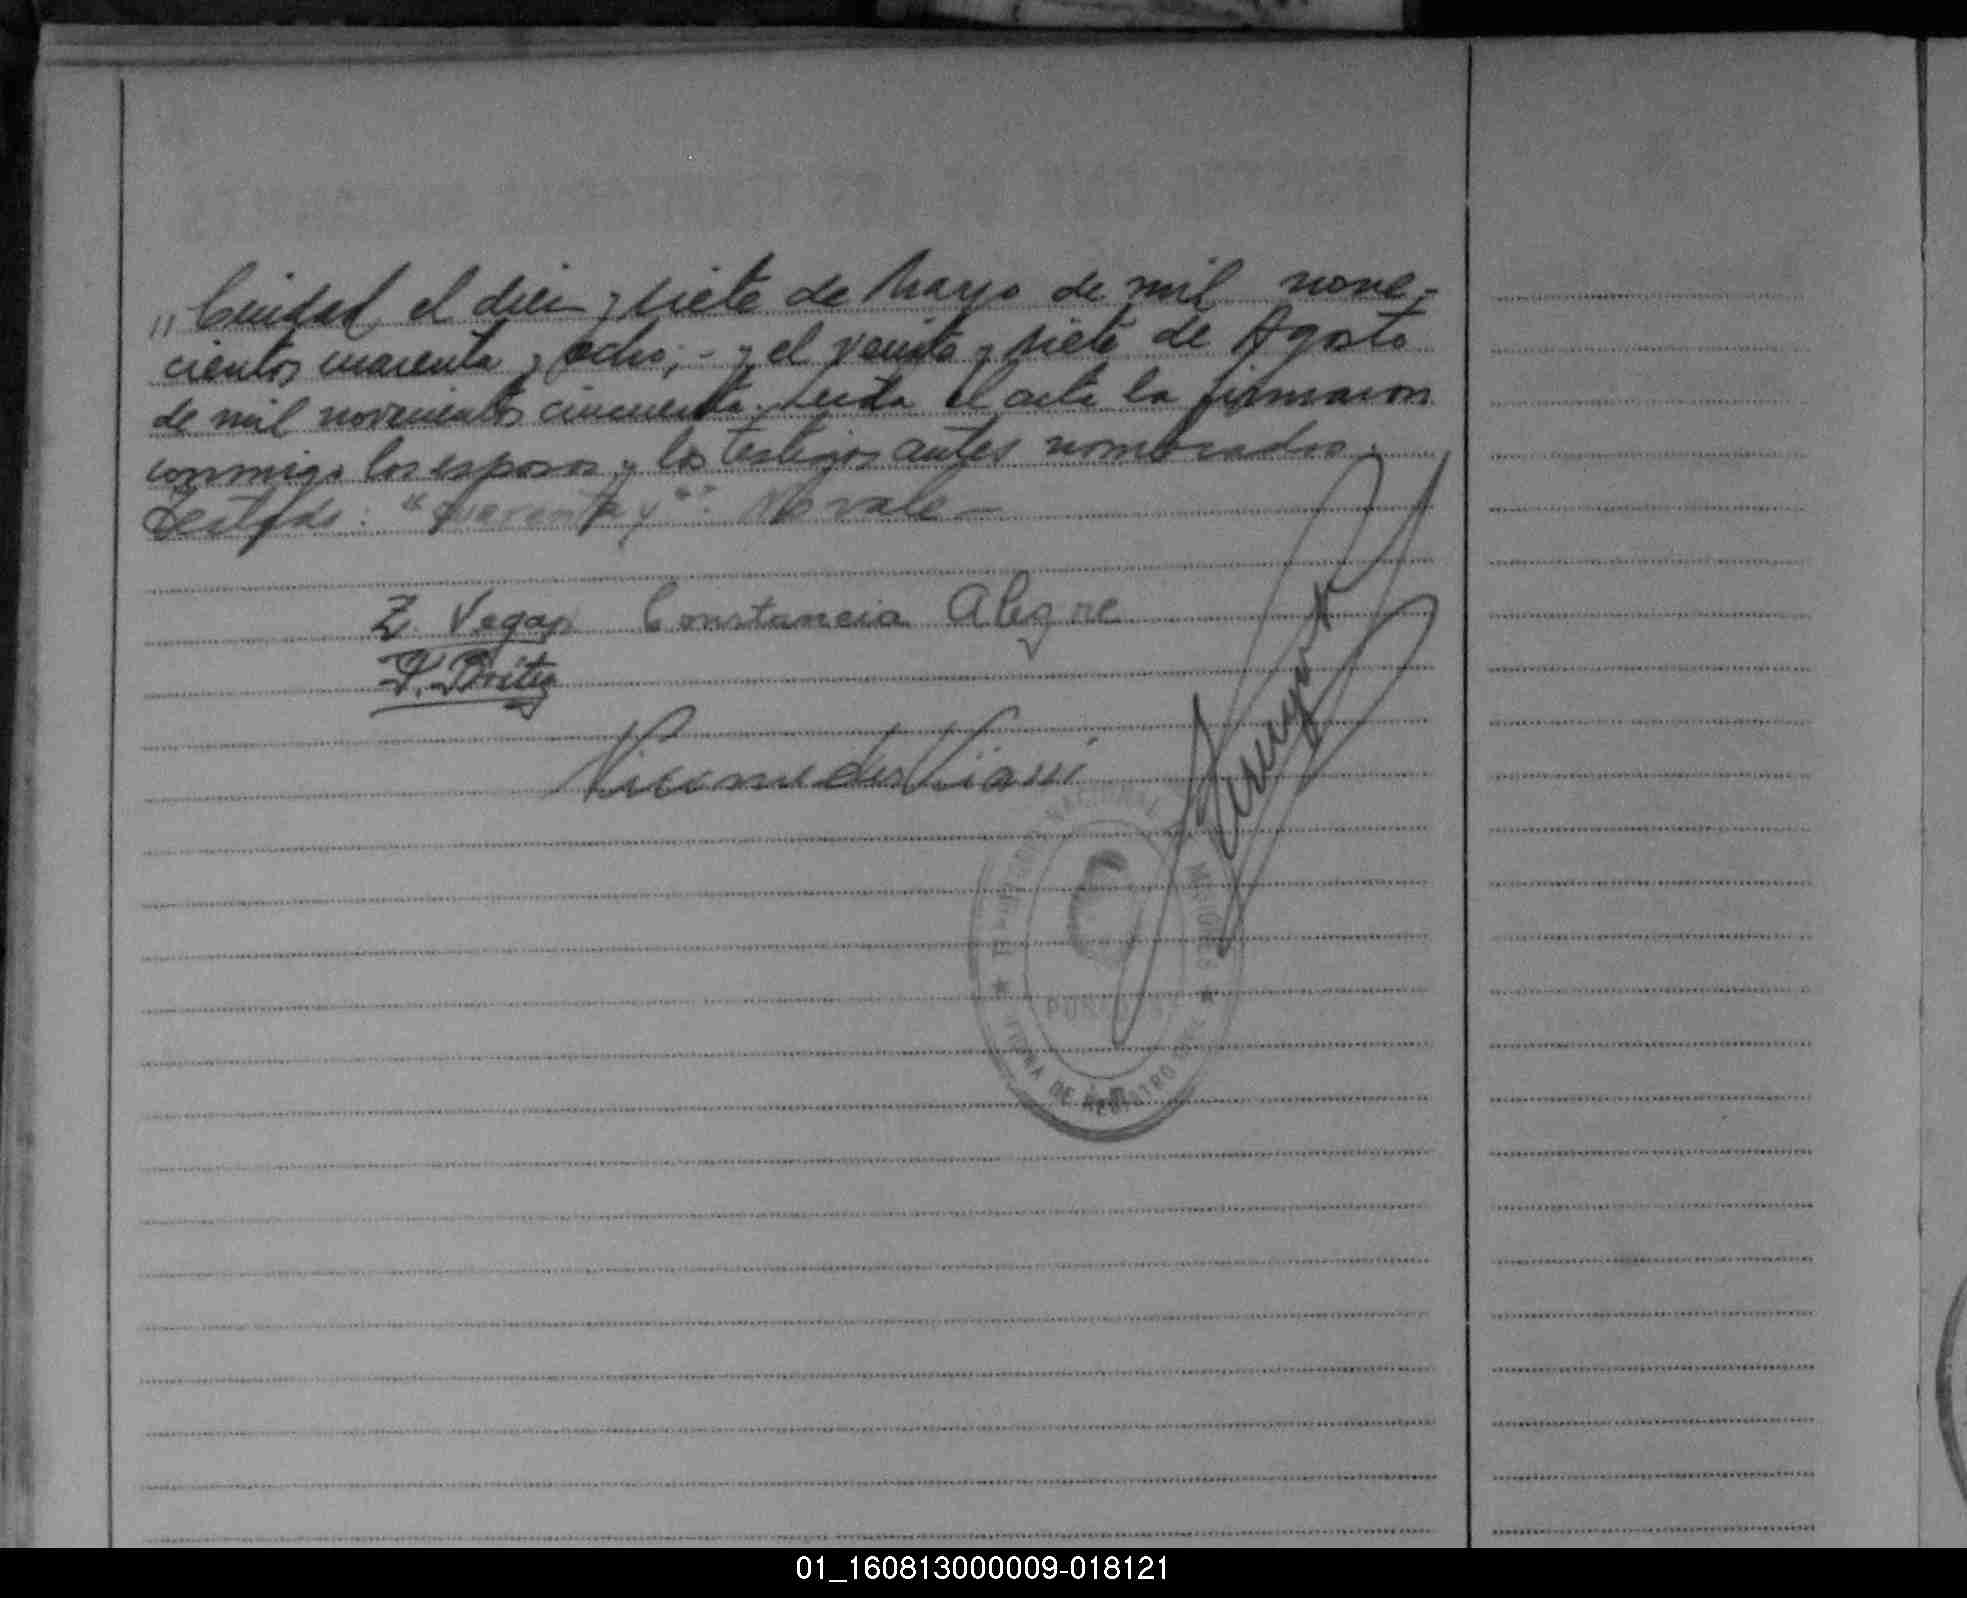 " Ciudad, el diez y siete de Mayo de mil nove-
cientos cuarenta y ocho; - y el veinte y siete de Agosto
de mil novecientos cincuenta. Leida el acta la firmaron
conmigo los esposos y los testigos antes nombrados.
Testado: "cuarenta y": No vale—
Z. Vega Constancia Alegre
P. Britez
Nicomedes
NACIONAL MISIONES
OFICINA DE REGISTRO CIVIL
01_160813000009-018121